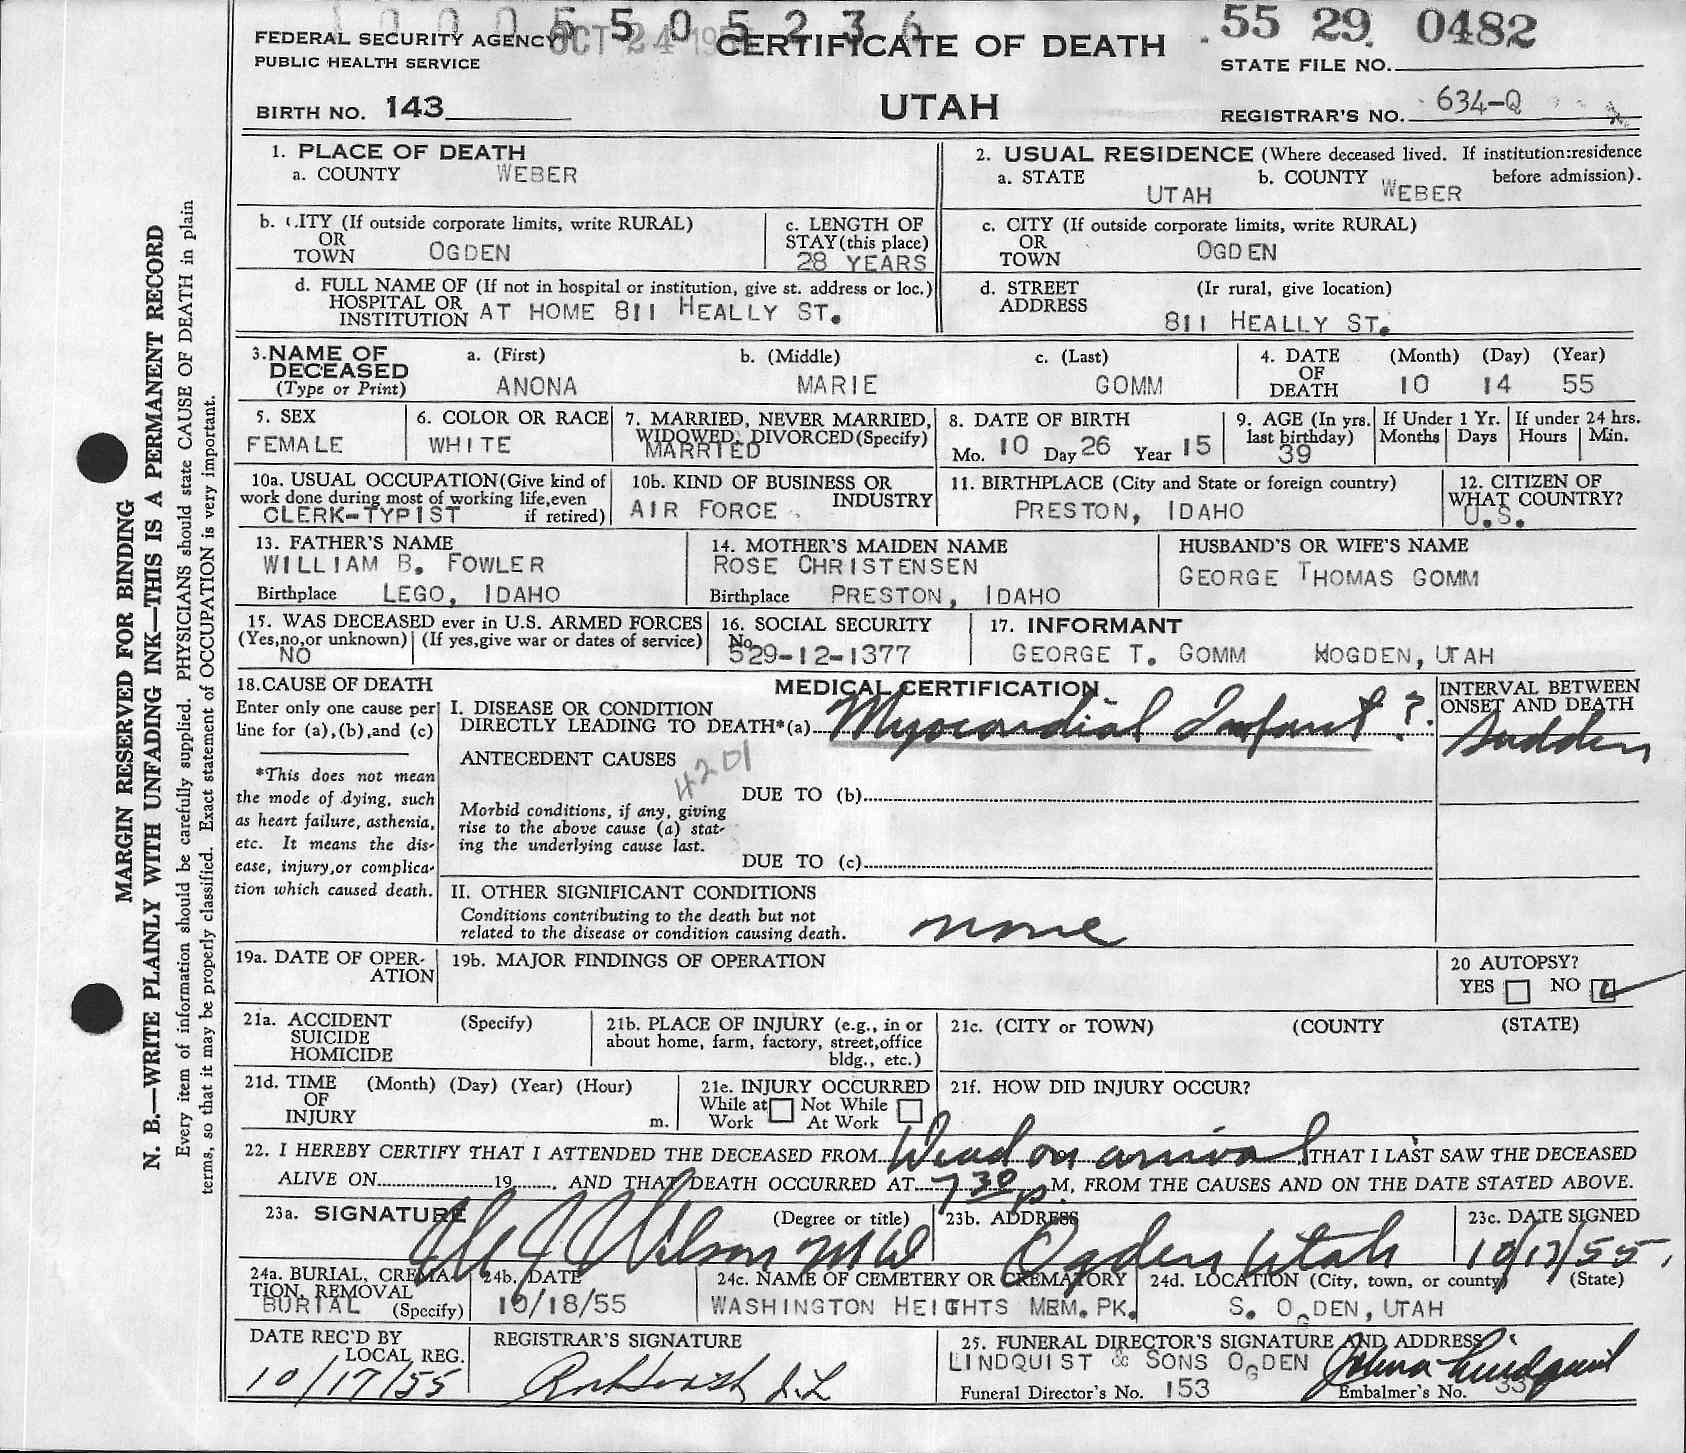 1000 5505236
OCT 24 19
FEDERAL SECURITY AGENCY
PUBLIC HEALTH SERVICE
CERTIFICATE OF DEATH
55 29 0482
STATE FILE NO.
BIRTH NO. 143
UTAH
REGISTRAR'S NO. 634-Q
1. PLACE OF DEATH
a. COUNTY WEBER
2. USUAL RESIDENCE (Where deceased lived. If institution:residence
before admission).
a. STATE UTAH b. COUNTY WEBER
b. CITY (If outside corporate limits, write RURAL)
OR
TOWN OGDEN
c. LENGTH OF
STAY(this place)
28 YEARS
c. CITY (If outside corporate limits, write RURAL)
OR
TOWN OGDEN
d. FULL NAME OF (If not in hospital or institution, give st. address or loc.)
HOSPITAL OR
INSTITUTION AT HOME 811 HEALLY ST.
d. STREET (Ir rural, give location)
ADDRESS
811 HEALLY ST.
3. NAME OF
DECEASED
(Type or Print)
a. (First) b. (Middle) c. (Last)
ANONA MARIE GOMM
4. DATE (Month) (Day) (Year)
OF
DEATH 10 14 55
5. SEX
FEMALE
6. COLOR OR RACE
WHITE
7. MARRIED, NEVER MARRIED,
WIDOWED, DIVORCED(Specify)
MARRIED
8. DATE OF BIRTH
Mo. 10 Day 26 Year 15
9. AGE (In yrs.
last birthday)
39
If Under 1 Yr.
Months Days
If under 24 hrs.
Hours Min.
10a. USUAL OCCUPATION(Give kind of
work done during most of working life,even
if retired)
CLERK-TYPIST
10b. KIND OF BUSINESS OR
INDUSTRY
AIR FORCE
11. BIRTHPLACE (City and State or foreign country)
PRESTON, IDAHO
12. CITIZEN OF
WHAT COUNTRY?
U.S.
13. FATHER'S NAME
WILLIAM B. FOWLER
Birthplace LEGO, IDAHO
14. MOTHER'S MAIDEN NAME
ROSE CHRISTENSEN
Birthplace PRESTON, IDAHO
HUSBAND'S OR WIFE'S NAME
GEORGE THOMAS GOMM
15. WAS DECEASED ever in U.S. ARMED FORCES
(Yes,no,or unknown) (If yes,give war or dates of service)
NO
16. SOCIAL SECURITY
No.
529-12-1377
17. INFORMANT
GEORGE T. GOMM MOGDEN, UTAH
18. CAUSE OF DEATH
Enter only one cause per
line for (a),(b),and (c)
*This does not mean
the mode of dying, such
as heart failure, asthenia,
etc. It means the dis-
ease, injury,or complica-
tion which caused death.
MEDICAL CERTIFICATION
I. DISEASE OR CONDITION
DIRECTLY LEADING TO DEATH*(a) Myocardial Infarct?
INTERVAL BETWEEN
ONSET AND DEATH
Sudden
ANTECEDENT CAUSES
4201
Morbid conditions, if any, giving
rise to the above cause (a) stat-
ing the underlying cause last.
DUE TO (b)
DUE TO (c)
II. OTHER SIGNIFICANT CONDITIONS
Conditions contributing to the death but not
related to the disease or condition causing death.
none
19a. DATE OF OPER-
ATION
19b. MAJOR FINDINGS OF OPERATION
20 AUTOPSY?
YES NO
21a. ACCIDENT (Specify)
SUICIDE
HOMICIDE
21b. PLACE OF INJURY (e.g., in or
about home, farm, factory, street,office
bldg., etc.)
21c. (CITY or TOWN) (COUNTY (STATE)
21d. TIME (Month) (Day) (Year) (Hour)
OF
INJURY m.
21e. INJURY OCCURRED
While at Not While
Work At Work
21f. HOW DID INJURY OCCUR?
22. I HEREBY CERTIFY THAT I ATTENDED THE DECEASED FROM Dead on arrival, THAT I LAST SAW THE DECEASED
ALIVE ON 19 , AND THAT DEATH OCCURRED AT 7 30 p M, FROM THE CAUSES AND ON THE DATE STATED ABOVE.
23a. SIGNATURE (Degree or title)
Wilson MD
23b. ADDRESS
Ogden Utah
23c. DATE SIGNED
10/17/55
24a. BURIAL, CREMA-
TION, REMOVAL
BURIAL (Specify)
24b. DATE
10/18/55
24c. NAME OF CEMETERY OR CREMATORY
WASHINGTON HEIGHTS MEM. PK.
24d. LOCATION (City, town, or county) (State)
S. OGDEN, UTAH
DATE REC'D BY
LOCAL REG.
10/17/55
REGISTRAR'S SIGNATURE
25. FUNERAL DIRECTOR'S SIGNATURE AND ADDRESS
LINDQUIST & SONS OGDEN
Funeral Director's No. 153
Embalmer's No.
MARGIN RESERVED FOR BINDING
N. B.—WRITE PLAINLY WITH UNFADING INK—THIS IS A PERMANENT RECORD
Every item of information should be carefully supplied. PHYSICIANS should state CAUSE OF DEATH in plain
terms, so that it may be properly classified. Exact statement of OCCUPATION is very important.